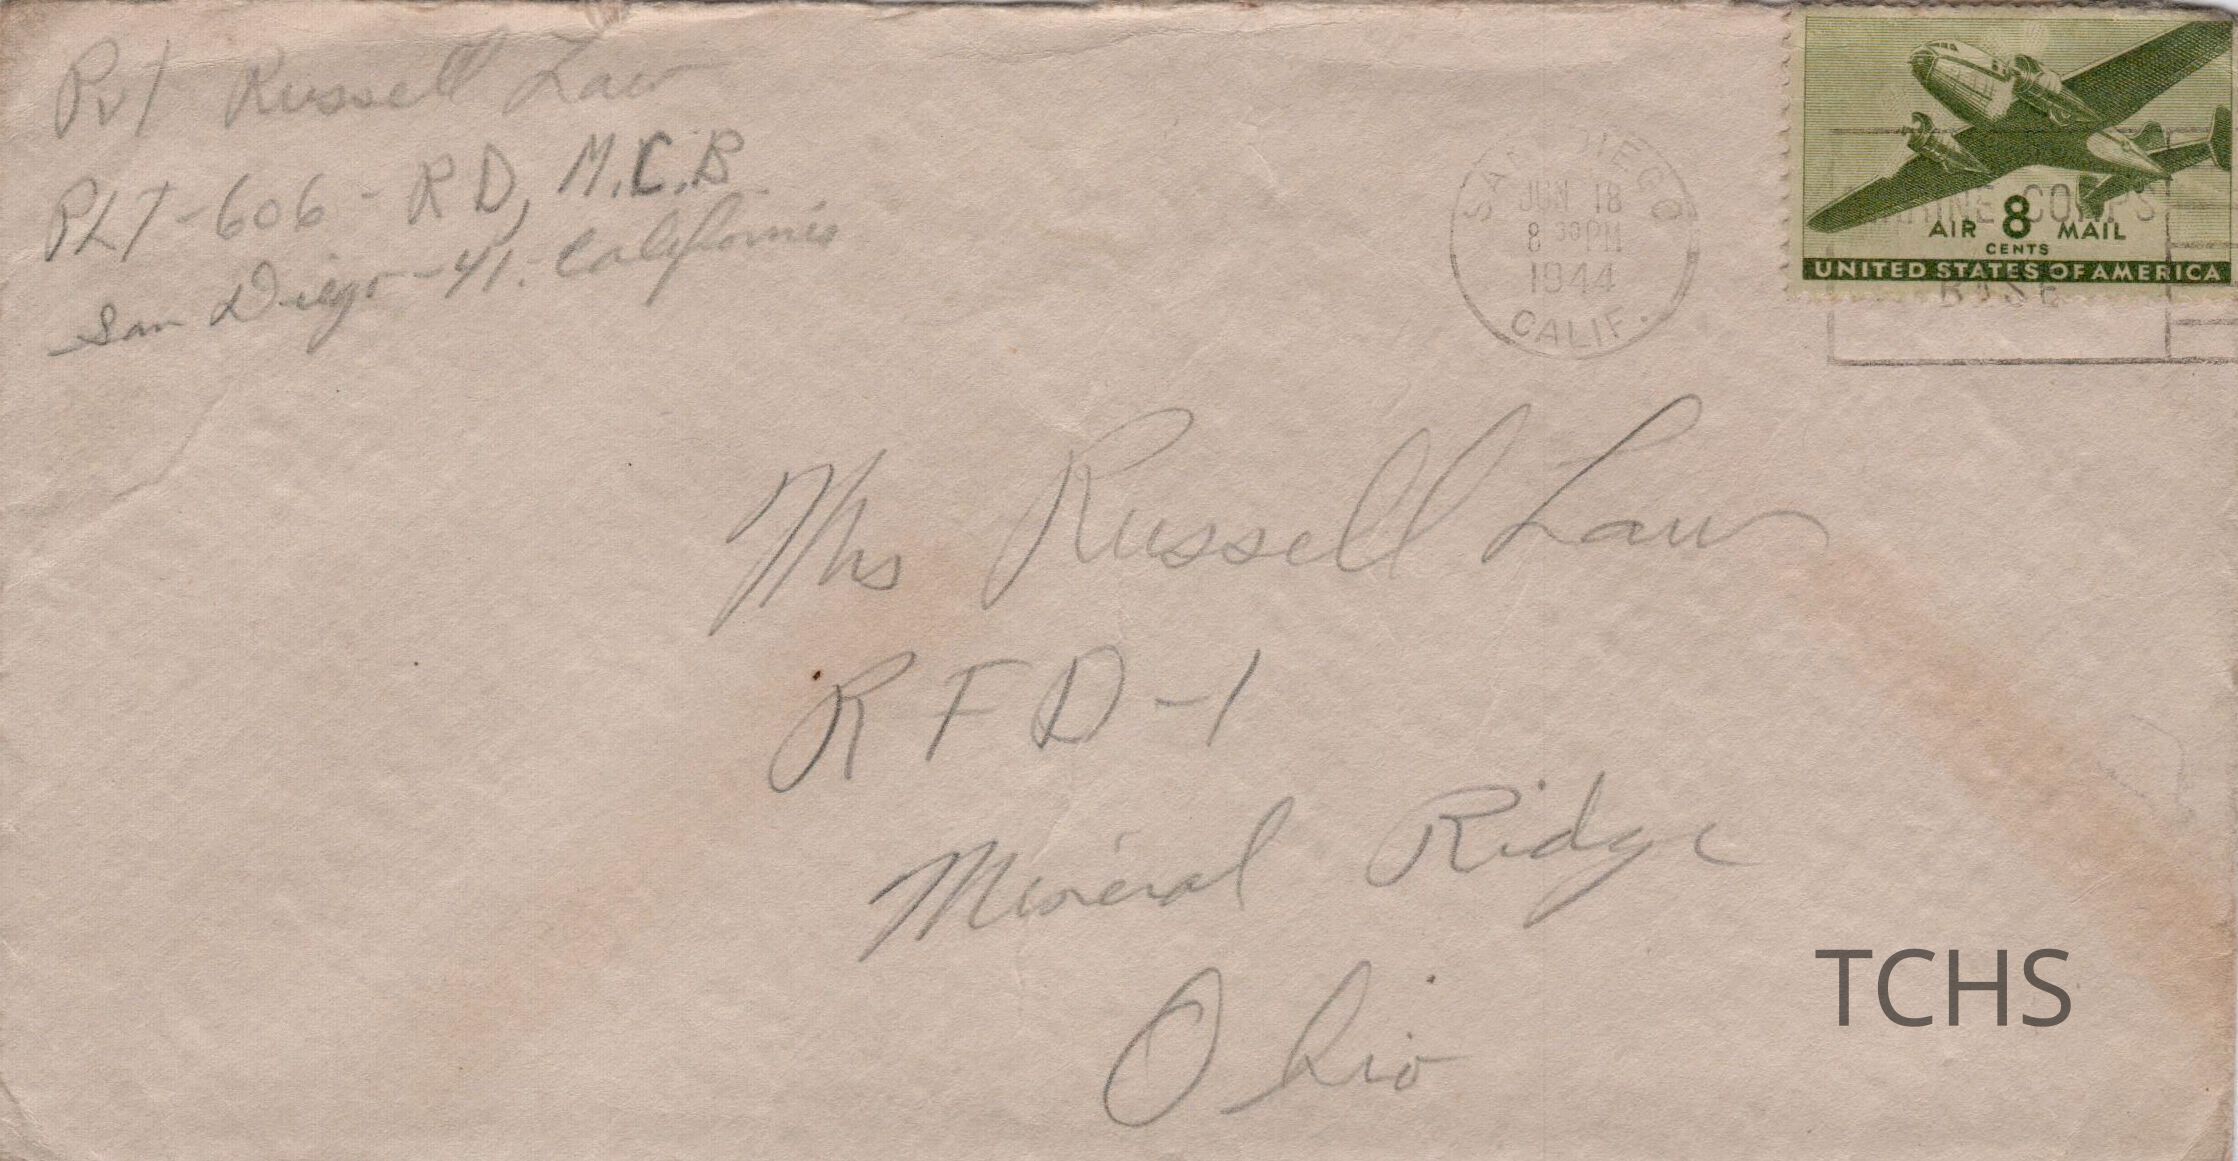 Pvt Russell Law
PLT-606-RD, M.C.B
San Diego-41. California
SAN DIEGO
JUN 18
8 30 PM
1944
CALIF.
MARINE CORPS
BASE
AIR 8 MAIL
CENTS
UNITED STATES OF AMERICA
Mrs Russell Law
RFD-1
Mineral Ridge
Ohio
TCHS